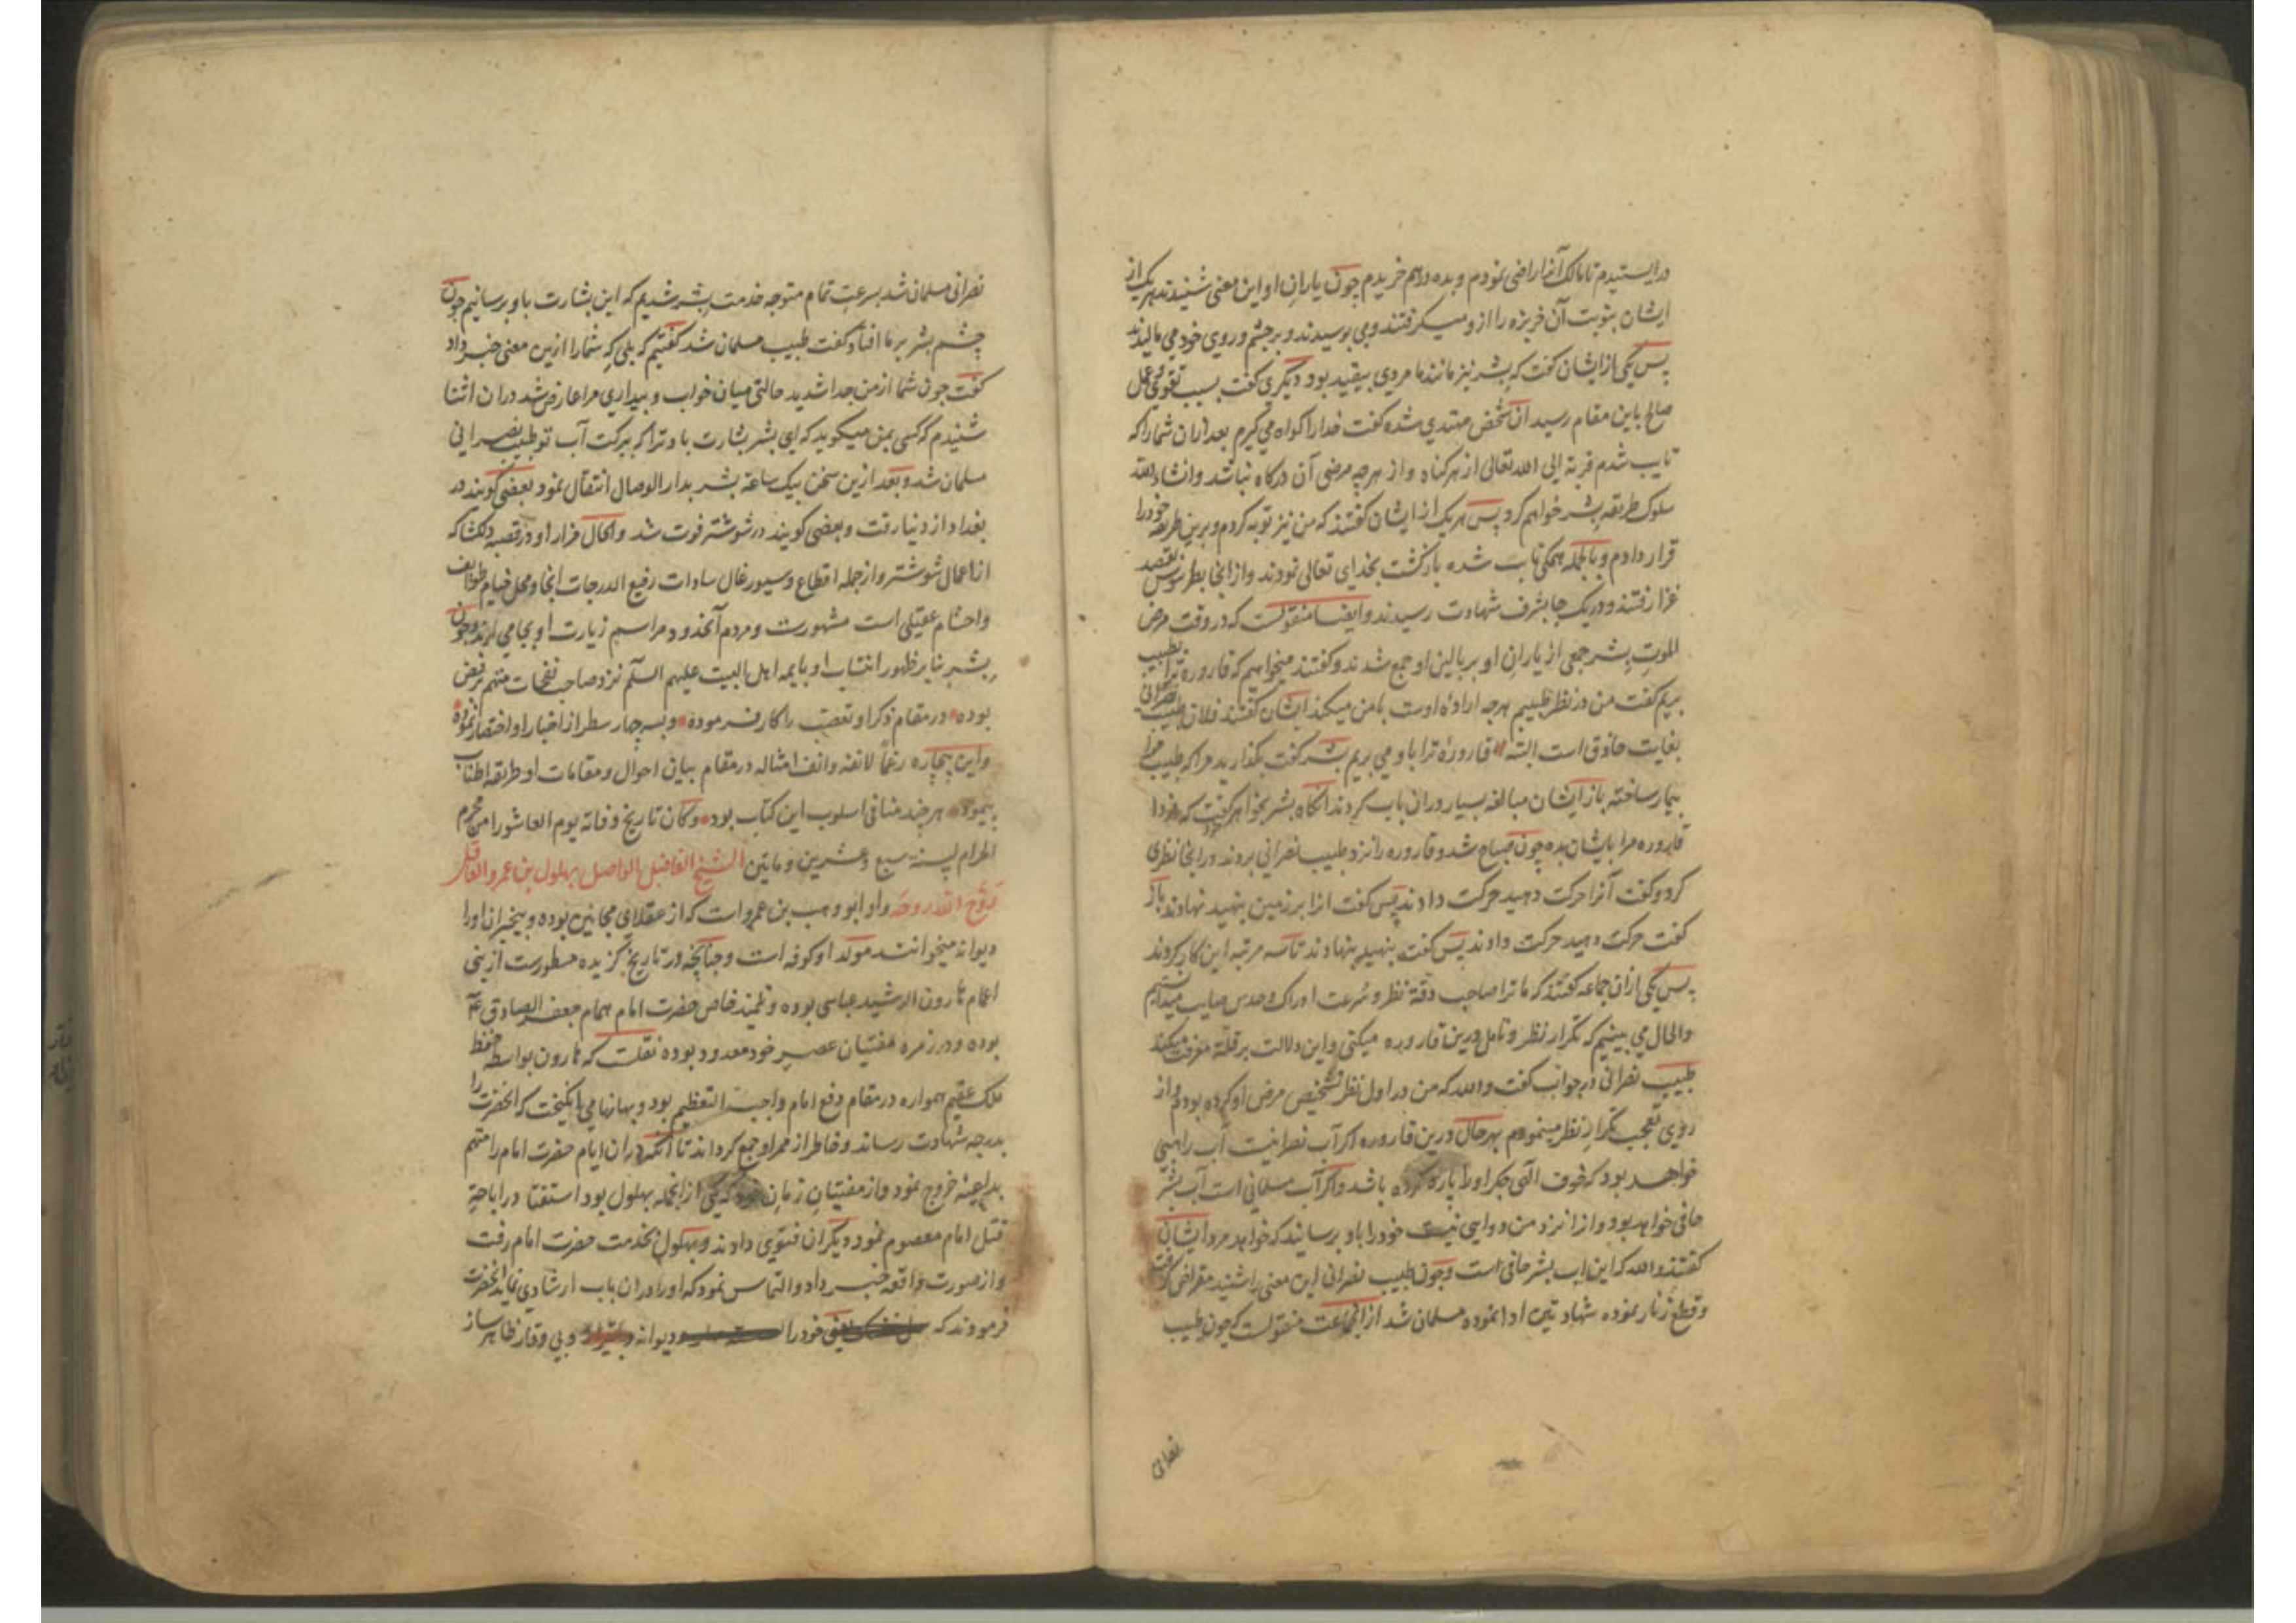 درایستیدم تا مالک آنرا راضی نمودم و بده درهم خریدم چون یاران او این معنی شنیدند هر یک از
ایشان بنوبت آن خربزه را از و میگرفتند و می بوسیدند و بر چشم و روی خود می مالیدند
پس یکی از ایشان گفت که بشر نیز مانند ما مردی بیقید بود دیگری گفت بسبب تقوی و عمل
صالح باین مقام رسید آن شخص مهتدی شده گفت خدا را گواه می گیرم بعد ازان شما را که
تایب شدم قربة الی الله تعالی از هر گناه و از هر چه مرضی آن درگاه نباشد و انشاء الله
سلوک طریقه بشر خواهم کرد پس هر یک از ایشان گفتند که من نیز توبه کردم و برین طریقه خود را
قرار دادم و بالجمله همگی تایب شده بازگشت بخدای تعالی نمودند و از انجا بطرسوس بقصد
غزا رفتند و در یک جا بشرف شهادت رسیدند و ایضا منقولست که در وقت مرض
الموت بشر جمعی از یاران او بر بالین او جمع شدند و گفتند میخواهیم که قاروره ترا بطبیب
بریم گفت من در نظر طبیبم هرچه اراده اوست با من میکند ایشان گفتند فلان طبیب نصرانی
بغایت حاذق است البته قاروره ترا باو می بریم بشر گفت بگذارید مرا که طبیب مرا
بیمار ساخته باز ایشان مبالغه بسیار دران باب کردند انگاه بشر بخواهر گفت که فردا
قاروره مرا بایشان بده چون صباح شد و قاروره را نزد طبیب نصرانی بردند و در انجا نظری
کرد و گفت آنرا حرکت دهید حرکت دادند پس گفت انرا بر زمین بنهید نهادند باز
گفت حرکت دهید حرکت دادند پس گفت بنهید بنهادند تا سه مرتبه این کار کردند
پس یکی ازان جماعه گفتند که ما ترا صاحب دقة نظر و سرعت ادراک و حدس صایب میدانستیم
والحال می بینیم که تکرار نظر و تامل درین قاروره میکنی و این دلالت بر قلة معرفت میکند
طبیب نصرانی در جواب گفت والله که من در اول نظر تشخیص مرض او کرده بودم و از
روی تعجب تکرار نظر مینمودم بهر حال درین قاروره اگر آب نصرانیست آب راهبی
خواهد بود که خوف الهی جگر او را پاره کرده باشد و اگر آب مسلمانی است آب بشر
حافی خواهد بود و از انزد من دوایی نیست خود را باو برسانید که خواهد مرد ایشان
گفتند والله که این آب بشر حافی است و چون طبیب نصرانی این معنی را شنید مقراضی گرفت
و قطع زنار نموده شهادتین ادا نموده مسلمان شد از انجماعت منقولست که چون طبیب
نصرانی
نصرانی مسلمان شد بسرعت تمام متوجه خدمت بشر شدیم که این بشارت باو برسانیم چون
چشم بشر بر ما افتاد گفت طبیب مسلمان شد گفتیم که بلی که شما را ازین معنی خبر داد
گفت چون شما از من جدا شدید حالتی میان خواب و بیداری مرا عارض شد دران اثنا
شنیدم که کسی بمن میگوید که ای بشر بشارت باد ترا که ببرکت آب تو طبیب نصرانی
مسلمان شد و بعد ازین سخن بیک ساعة بشر بدار الوصال انتقال نمود بعضی گویند در
بغداد از دنیا رفت و بعضی گویند در شوشتر فوت شد و الحال مزار او در قصبه دلکشا که
از اعمال شوشتر و از جمله اقطاع و سیورغال سادات رفیع الدرجات انجا و محل خیام طوایف
و احشام عقیلی است مشهورست و مردم آنحدود مراسم زیارت او بجا می ارند و چون
بشر بنا بر ظهور انتساب او بایمه اهل البیت علیهم السلام نزد صاحب نفحات متهم برفض
بوده در مقام ذکر او تعصب را کار فرموده و بسه چهار سطر از اخبار او اختصار نموده
و این بیچاره رغما لانفه و انف امثاله در مقام بیان احوال و مقامات او طریقه اطناب
پیموده هر چند منافی اسلوب این کتاب بود و کان تاریخ وفاته یوم العاشورا من محرم
الحرام لسنة سبع و عشرین و ماتین الشیخ الفاضل الواصل بهلول بن عمرو العاقل
روح الله روحه و او ابو وهب بن عمرو است که از عقلای مجانین بوده و بیخبران او را
دیوانه میخوانند مولد او کوفه است و چنانچه در تاریخ گزیده مسطورست از بنی
اعمام هارون الرشید عباسی بوده و تلمیذ خاص حضرت امام همام جعفر الصادق ع
بوده و در زمره مفتیان عصر خود معدود بوده نقلست که هارون بواسطه حفظ
ملک عقیم همواره در مقام دفع امام واجب التعظیم بود و بهانها می انگیخت که انحضرت را
بدرجه شهادت رساند و خاطر از ممر او جمع گرداند تا انکه دران ایام حضرت امام را متهم
بداعیه خروج نمود و از مفتیان زمان خود که یکی از انجمله بهلول بود استفتا در اباحة
قتل امام معصوم نمود دیگران فتوی دادند و بهلول بخدمت حضرت امام رفت
و از صورت واقعه خبر داد و التماس نمود که او را دران باب ارشادی نماید انحضرت
فرمودند که خود را دیوانه و بی وقار ظاهر ساز